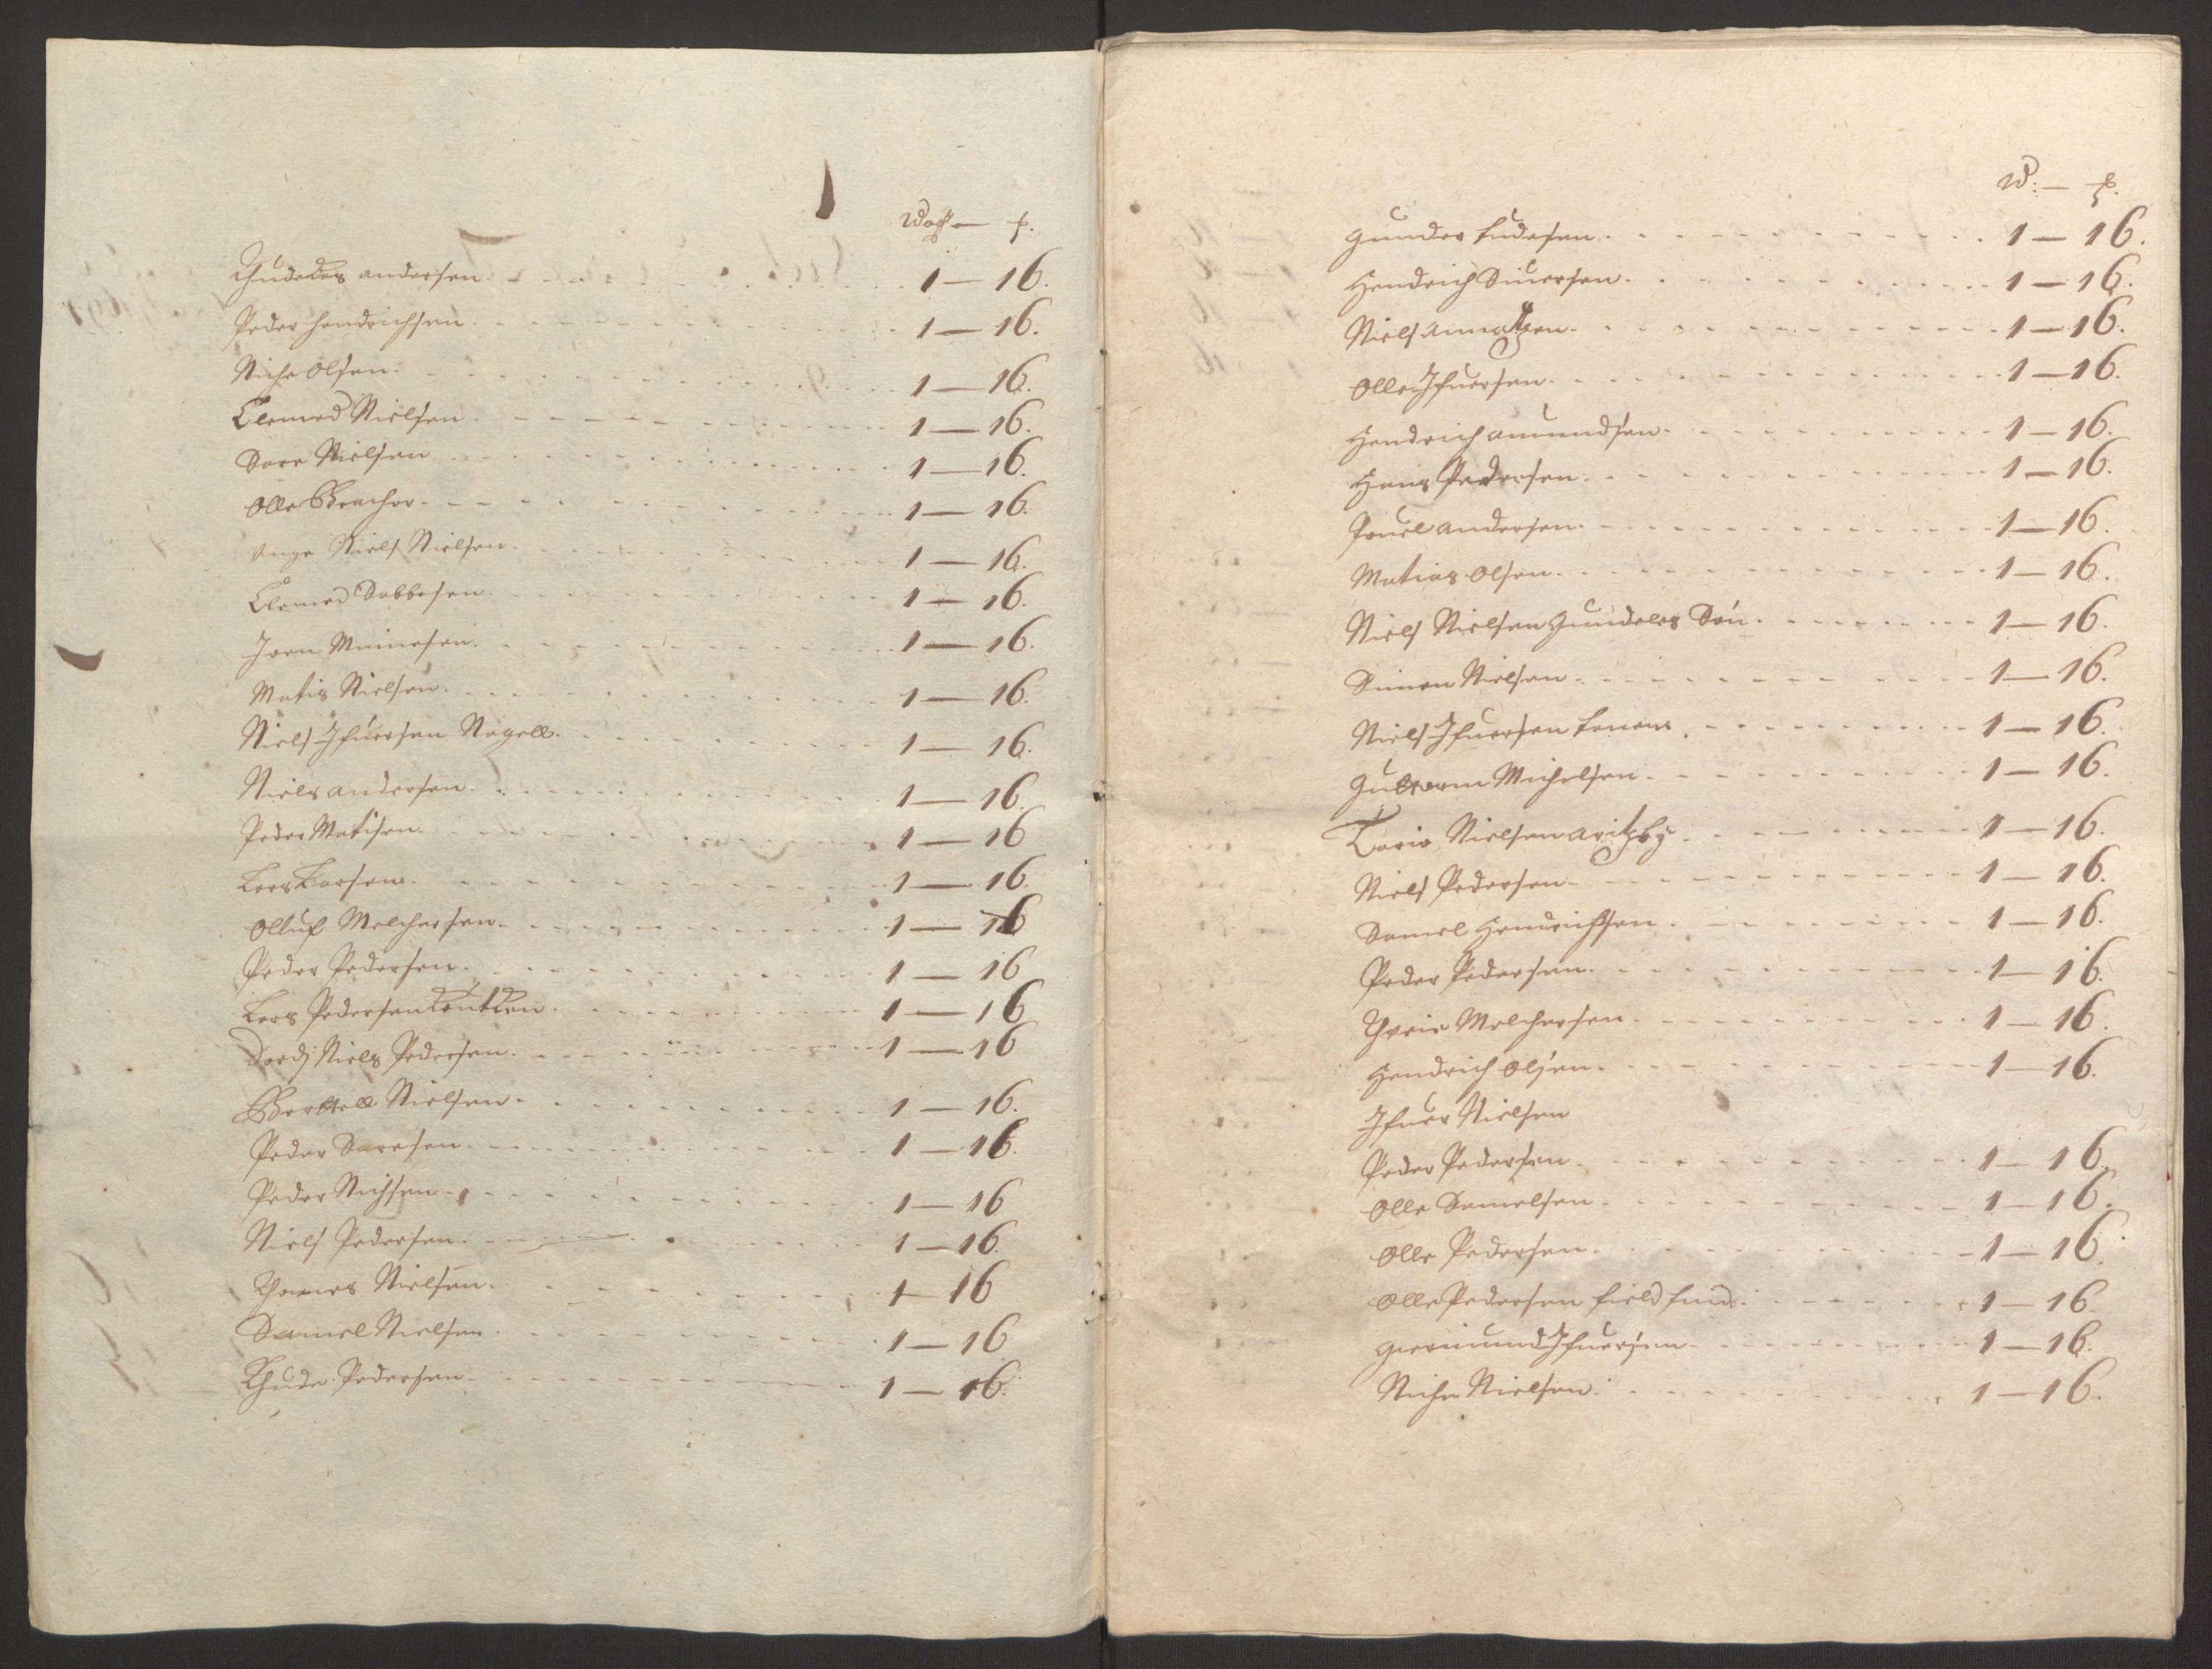 Wog — p.
andersen 1 — 16.
Peder hendrichsen 1 — 16.
Niche Olsen 1 — 16.
Clemed Nielsen 1 — 16.
Sare Nielsen 1 — 16.
Olle 1 — 16.
unge Niels Nielsen 1 — 16.
Clemed Sabbesen 1 — 16.
Joen 1 — 16.
Matis Nielsen 1 — 16.
Niels Ifuersen Nogell 1 — 16.
Niels andersen 1 — 16.
Peder Matisen 1 — 16
Lars Larsen 1 — 16.
Olluf Melchersen 1 — 16
Peder Pedersen 1 — 16
Lars Pedersen 1 — 16
Niels Pedersen 1 — 16
Bertell Nielsen 1 — 16.
Peder Saresen 1 — 16.
Peder Nichsen 1 — 16
Niels Pedersen 1 — 16.
Thomes Nielsen 1 — 16
Samel Nielsen 1 — 16
Chude Pedersen 1 — 16.
W: — p.
gunder 1 — 16.
Hendrich Siuersen 1 — 16.
Niels 1 — 16.
Olle Ifuersen 1 — 16.
Hendrich amundsen 1 — 16.
Hans Pedersen 1 — 16.
Pouel andersen 1 — 16.
Matias Olsen 1 — 16.
Niels Nielsen gundeles Sön 1 — 16.
Simen Nielsen 1 — 16.
Niels Ifuersen 1 — 16.
gutterm Michelsen 1 — 16.
Nielsen 1 — 16.
Niels Pedersen 1 — 16.
Samel Hendrichsen 1 — 16.
Peder Pedersen 1 — 16.
Melchersen 1 — 16.
Hendrich Olsen 1 — 16.
Ifuer Nielsen
Peder Pedersen 1 — 16.
Olle Samelsen 1 — 16.
Olle Pedersen 1 — 16.
Olle Pedersen field 1 — 16
giermund Ifuersen 1 — 16.
Niche Nielsen 1 — 16.